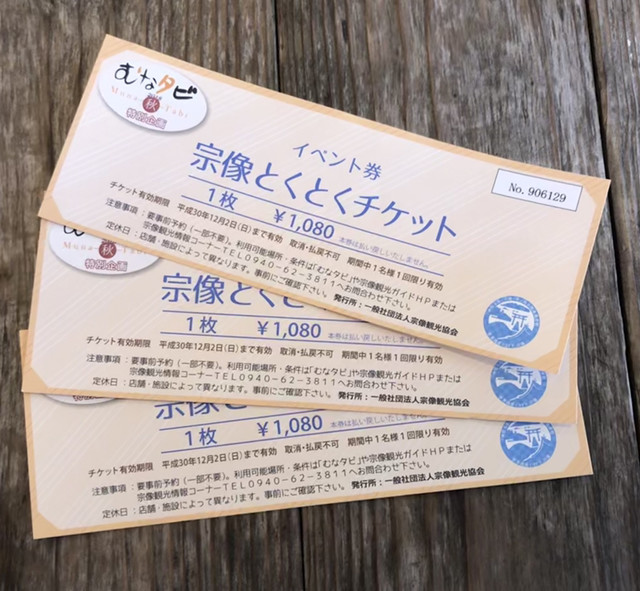 むなタビ
秋
特別企画
イベント券
No. 906129
宗像とくとくチケット
1枚 ￥1,080 本券は払い戻しいたしません。
チケット有効期限 平成30年12月2日(日)まで有効 取消・払戻不可 期間中1名様1回限り有効
注意事項：要事前予約(一部不要)。利用可能場所・条件は「むなタビ」や宗像観光ガイドHPまたは
宗像観光情報コーナーTEL0940-62-3811へお問合わせ下さい。
定休日：店舗・施設によって異なります。事前にご確認下さい。 発行所：一般社団法人宗像観光協会
特別企画
宗像とくと
1枚 ￥1,080 本券は払い戻しいたしません
チケット有効期限 平成30年12月2日(日)まで有効 取消・払戻不可 期間中1名様1回限り有効
注意事項：要事前予約(一部不要)。利用可能場所・条件は「むなタビ」や宗像観光ガイドHPまたは
宗像観光情報コーナーTEL0940-62-3811へお問合わせ下さい。
定休日：店舗・施設によって異なります。事前にご確認下さい。 発行所：一般社団法人宗像観光協会
宗像とくと
1枚 ￥1,080 本券は払い戻しいたしません。
チケット有効期限 平成30年12月2日(日)まで有効 取消・払戻不可 期間中1名様1回限り有効
注意事項：要事前予約(一部不要)。利用可能場所・条件は「むなタビ」や宗像観光ガイドHPまたは
宗像観光情報コーナーTEL0940-62-3811へお問合わせ下さい。
定休日：店舗・施設によって異なります。事前にご確認下さい。 発行所：一般社団法人宗像観光協会